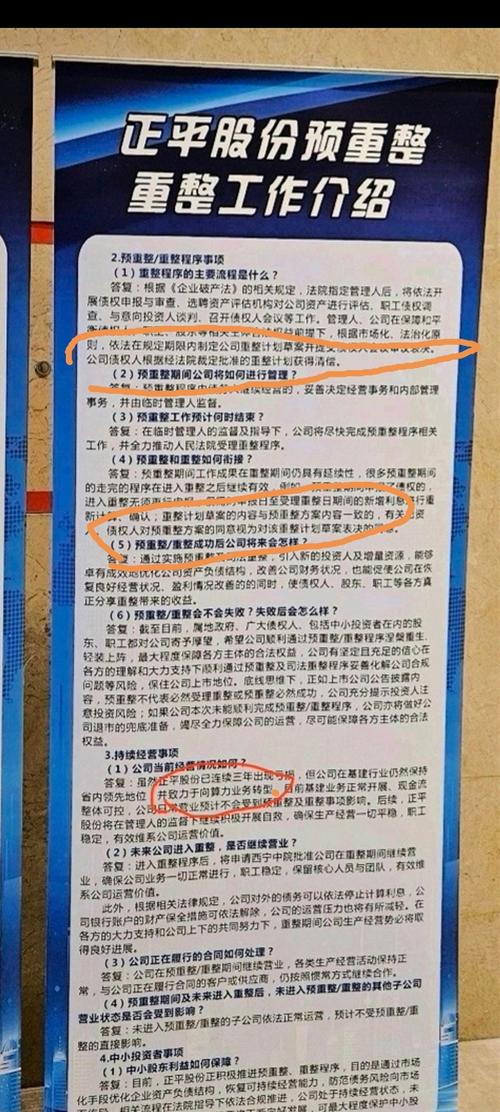 正平股份预重整
重整工作介绍
2.预重整/重整程序事项
（1）重整程序的主要流程是什么？
答复：根据《企业破产法》的相关规定，法院指定管理人后，将依法开
展债权申报与审查、选聘资产评估机构对公司资产进行评估、职工债权调
查、与意向投资人谈判、召开债权人会议等工作。管理人、公司在保障和平
衡债权人、职工、股东等相关主体合法权益前提下，根据市场化、法治化原
则，依法在规定期限内制定公司重整计划草案并提交债权人会议审议表决。
公司债权人根据经法院裁定批准的重整计划获得清偿。
（2）预重整期间公司将如何进行管理？
答复：预重整程序中债务人继续经营的，妥善决定经营事务和内部管理
事务，并由临时管理人监督。
（3）预重整工作预计何时结束？
答复：在临时管理人的监督及指导下，公司将尽快完成预重整程序相关
工作，并全力推动人民法院受理重整程序。
（4）预重整和重整如何衔接？
答复：预重整期间工作成果在重整期间仍具有延续性，很多预重整期间
的走完的程序在进入重整之后继续有效，例如，预重整期间申报了债权的，
进入重整无须重复申报，申报日至受理重整日期间的新增利息进行重
新计算、确认；重整计划草案的内容与预重整方案内容一致的，有关
债权人对预重整方案的同意视为对该重整计划草案表决的同意。
（5）预重整/重整成功后公司将来会怎样？
答复：通过实施预重整及司法重整，引入新的投资人及增量资源，能够
卓有成效地优化公司资产负债结构，改善公司财务状况，也能促使公司在恢
复良好经营状况、盈利情况改善的的同时，使债权人、股东、职工等各方真
正分享重整带来的收益。
（6）预重整/重整会不会失败？失败后会怎么样？
答复：截至目前，属地政府、广大债权人、包括中小投资者在内的股
东、职工都对公司寄予厚望，希望公司顺利通过预重整/重整程序涅槃重生、
轻装上阵，最大程度保障各方主体的合法权益，公司有坚定且充足的信心在
各方的理解和大力支持下顺利通过预重整及司法重整程序妥善化解公司合规
问题等风险，保住公司上市地位。底线思维下，正如上市公司公告披露内
容，预重整不代表必然受理重整或预重整必然成功，公司充分提示投资人注
意投资风险；如果公司本次未能顺利完成预重整/重整程序，公司亦将做好公
司退市的兜底准备，竭尽全力保障公司的运营，尽可能保障各方主体的合法
权益。
3.持续经营事项
（1）公司当前经营情况如何？
答复：虽然正平股份已连续三年出现亏损，但公司在基建行业仍然保持
省内领先地位，并致力于向算力业务转型，目前基建业务正常开展、现金流
整体可控，公司日常营业预计不会受到预重整及重整事项影响。后续，正平
股份将在管理人的监督下继续积极开展自救，确保生产经营一切平稳，职工
稳定，有效维系公司运营价值。
（2）未来公司进入重整，是否继续营业？
答复：进入重整程序后，将申请西宁中院批准公司在重整期间继续营
业，确保公司业务一切正常进行，职工稳定，保留核心人员与团队，有效维
系公司运营价值。
此外，根据相关法律规定，公司对外的债务可以依法停止计算利息，公
司银行账户的财产保全措施可依法解除，公司的运营压力也将有所减轻。在
各方的大力支持和公司上下的共同努力下，重整期间公司生产经营势必将取
得良好进展。
（3）公司正在履行的合同如何处理？
答复：公司在预重整/重整期间继续营业，各类生产经营活动保持正
常，与公司正在履行合同的客户或供应商，仍按照惯常方式继续合作。
（4）预重整期间及未来进入重整后，未进入预重整/重整的其他子公司
营业状态是否会受到影响？
答复：未进入预重整/重整的子公司依法正常运营，预计不受预重整/重
整的直接影响。
4.中小投资者事项
（1）中小股东利益如何保障？
答复：目前，正平股份正积极推进预重整、重整程序，目的是通过市场
化手段优化企业资产负债结构，恢复可持续经营能力，防范债务风险向市场